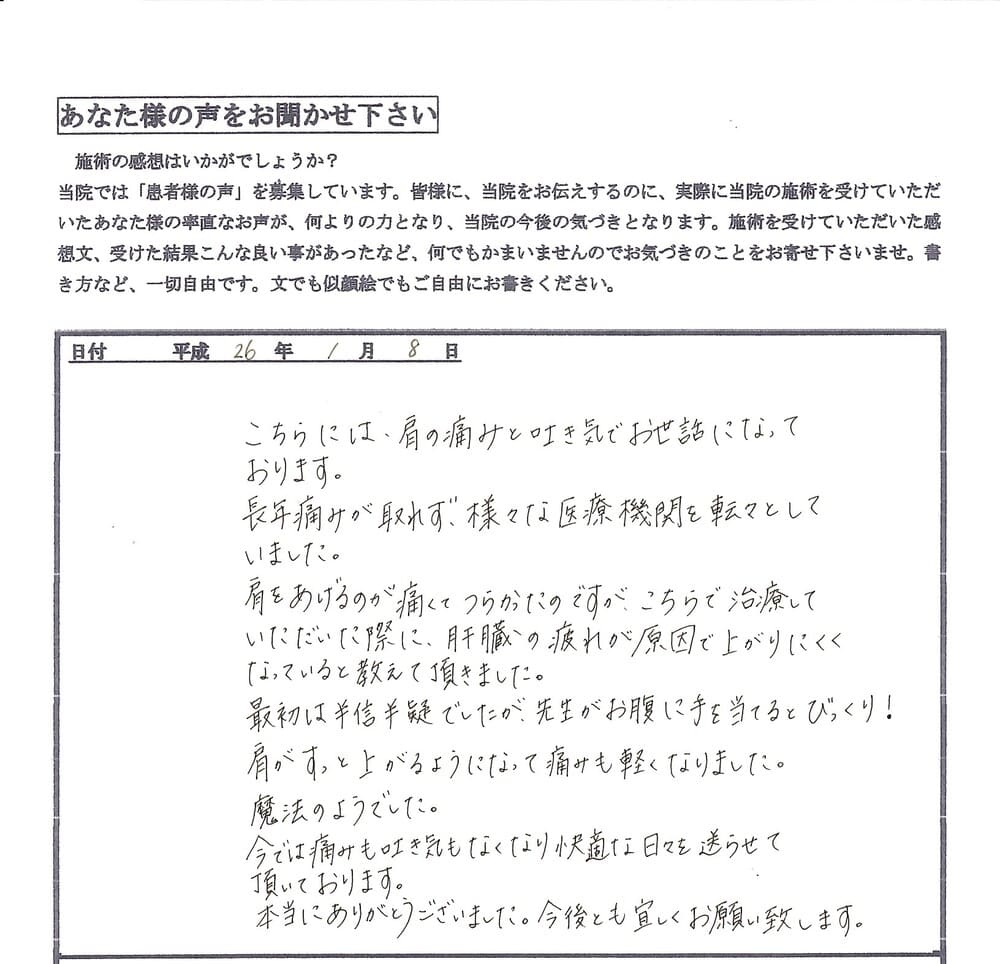 あなた様の声をお聞かせ下さい
施術の感想はいかがでしょうか？
当院では「患者様の声」を募集しています。皆様に、当院をお伝えするのに、実際に当院の施術を受けていただ
いたあなた様の率直なお声が、何よりの力となり、当院の今後の気づきとなります。施術を受けていただいた感
想文、受けた結果こんな良い事があったなど、何でもかまいませんのでお気づきのことをお寄せ下さいませ。書
き方など、一切自由です。文でも似顔絵でもご自由にお書きください。
日付 平成 26 年 1 月 8 日
こちらには、肩の痛みと吐き気でお世話になって
おります。
長年痛みが取れず、様々な医療機関を転々として
いました。
肩をあげるのが痛くてつらかったのですが、こちらで治療して
いただいた際に、肝臓の疲れが原因で上がりにくく
なっていると教えて頂きました。
最初は半信半疑でしたが、先生がお腹に手を当てるとびっくり！
肩がすっと上がるようになって痛みも軽くなりました。
魔法のようでした。
今では痛みも吐き気もなくなり快適な日々を送らせて
頂いております。
本当にありがとうございました。今後とも宜しくお願い致します。